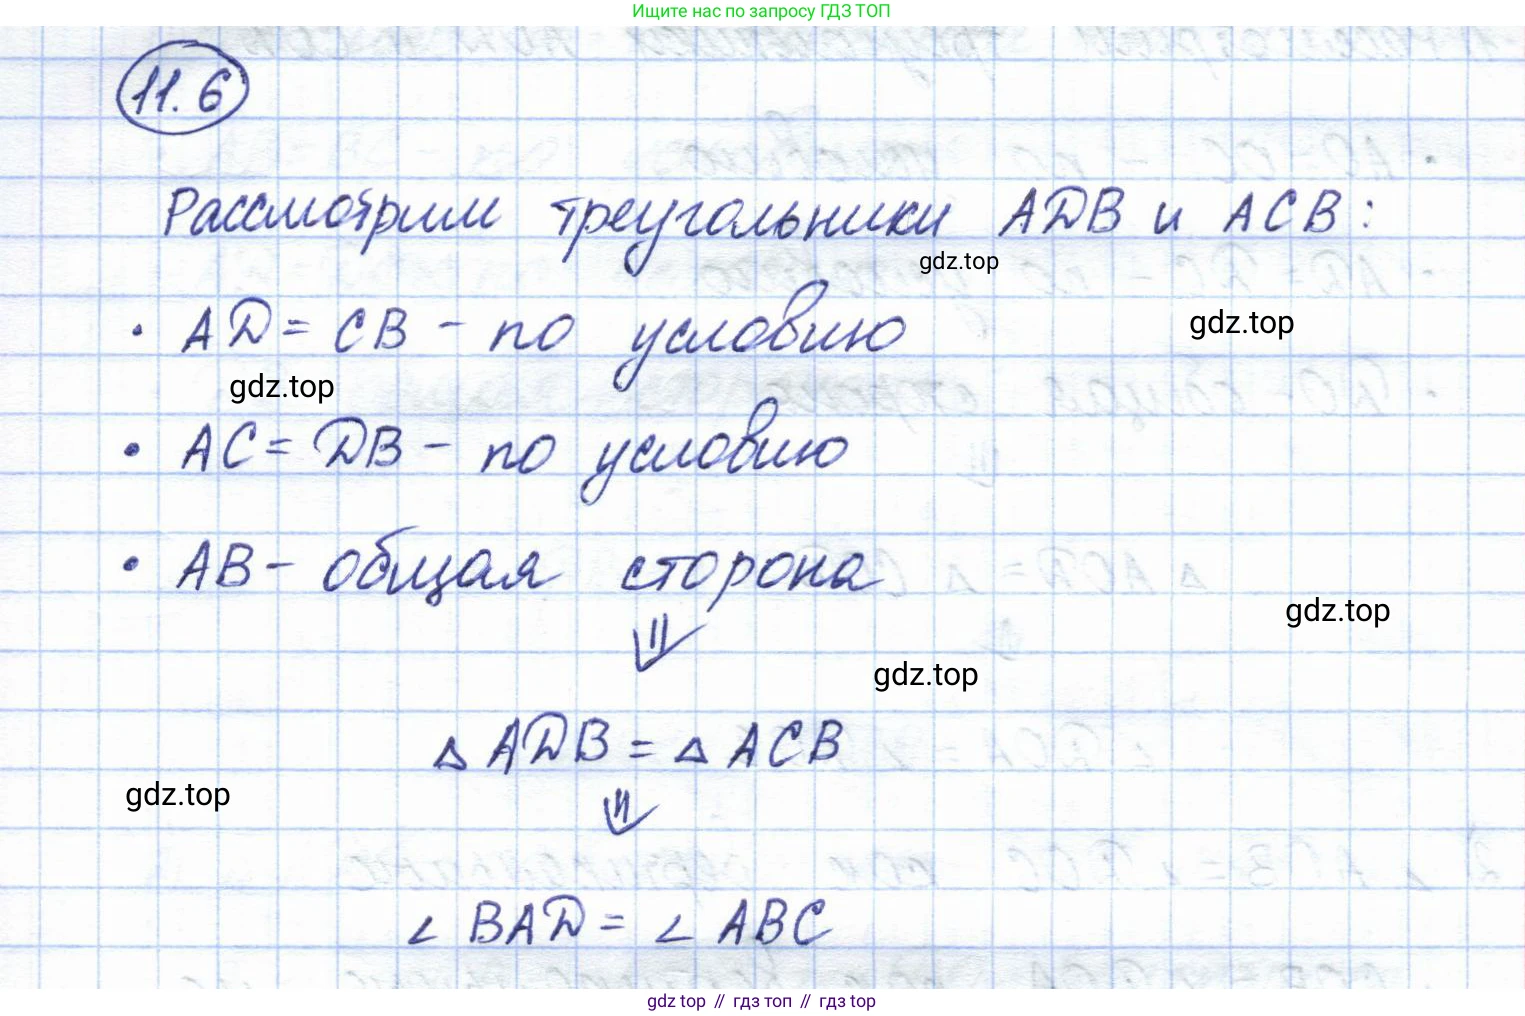 Ищите нас по запросу ГДЗ ТОП
11.6
Рассмотрим треугольники ADB и ACB:
gdz.top
• AD = CB - по условию
gdz.top
gdz.top
• AC = DB - по условию
• AB - общая сторона
⇓
gdz.top
gdz.top
△ ADB = △ ACB
gdz.top
⇓
∠ BAD = ∠ ABC
gdz top // гдз топ // гдз top